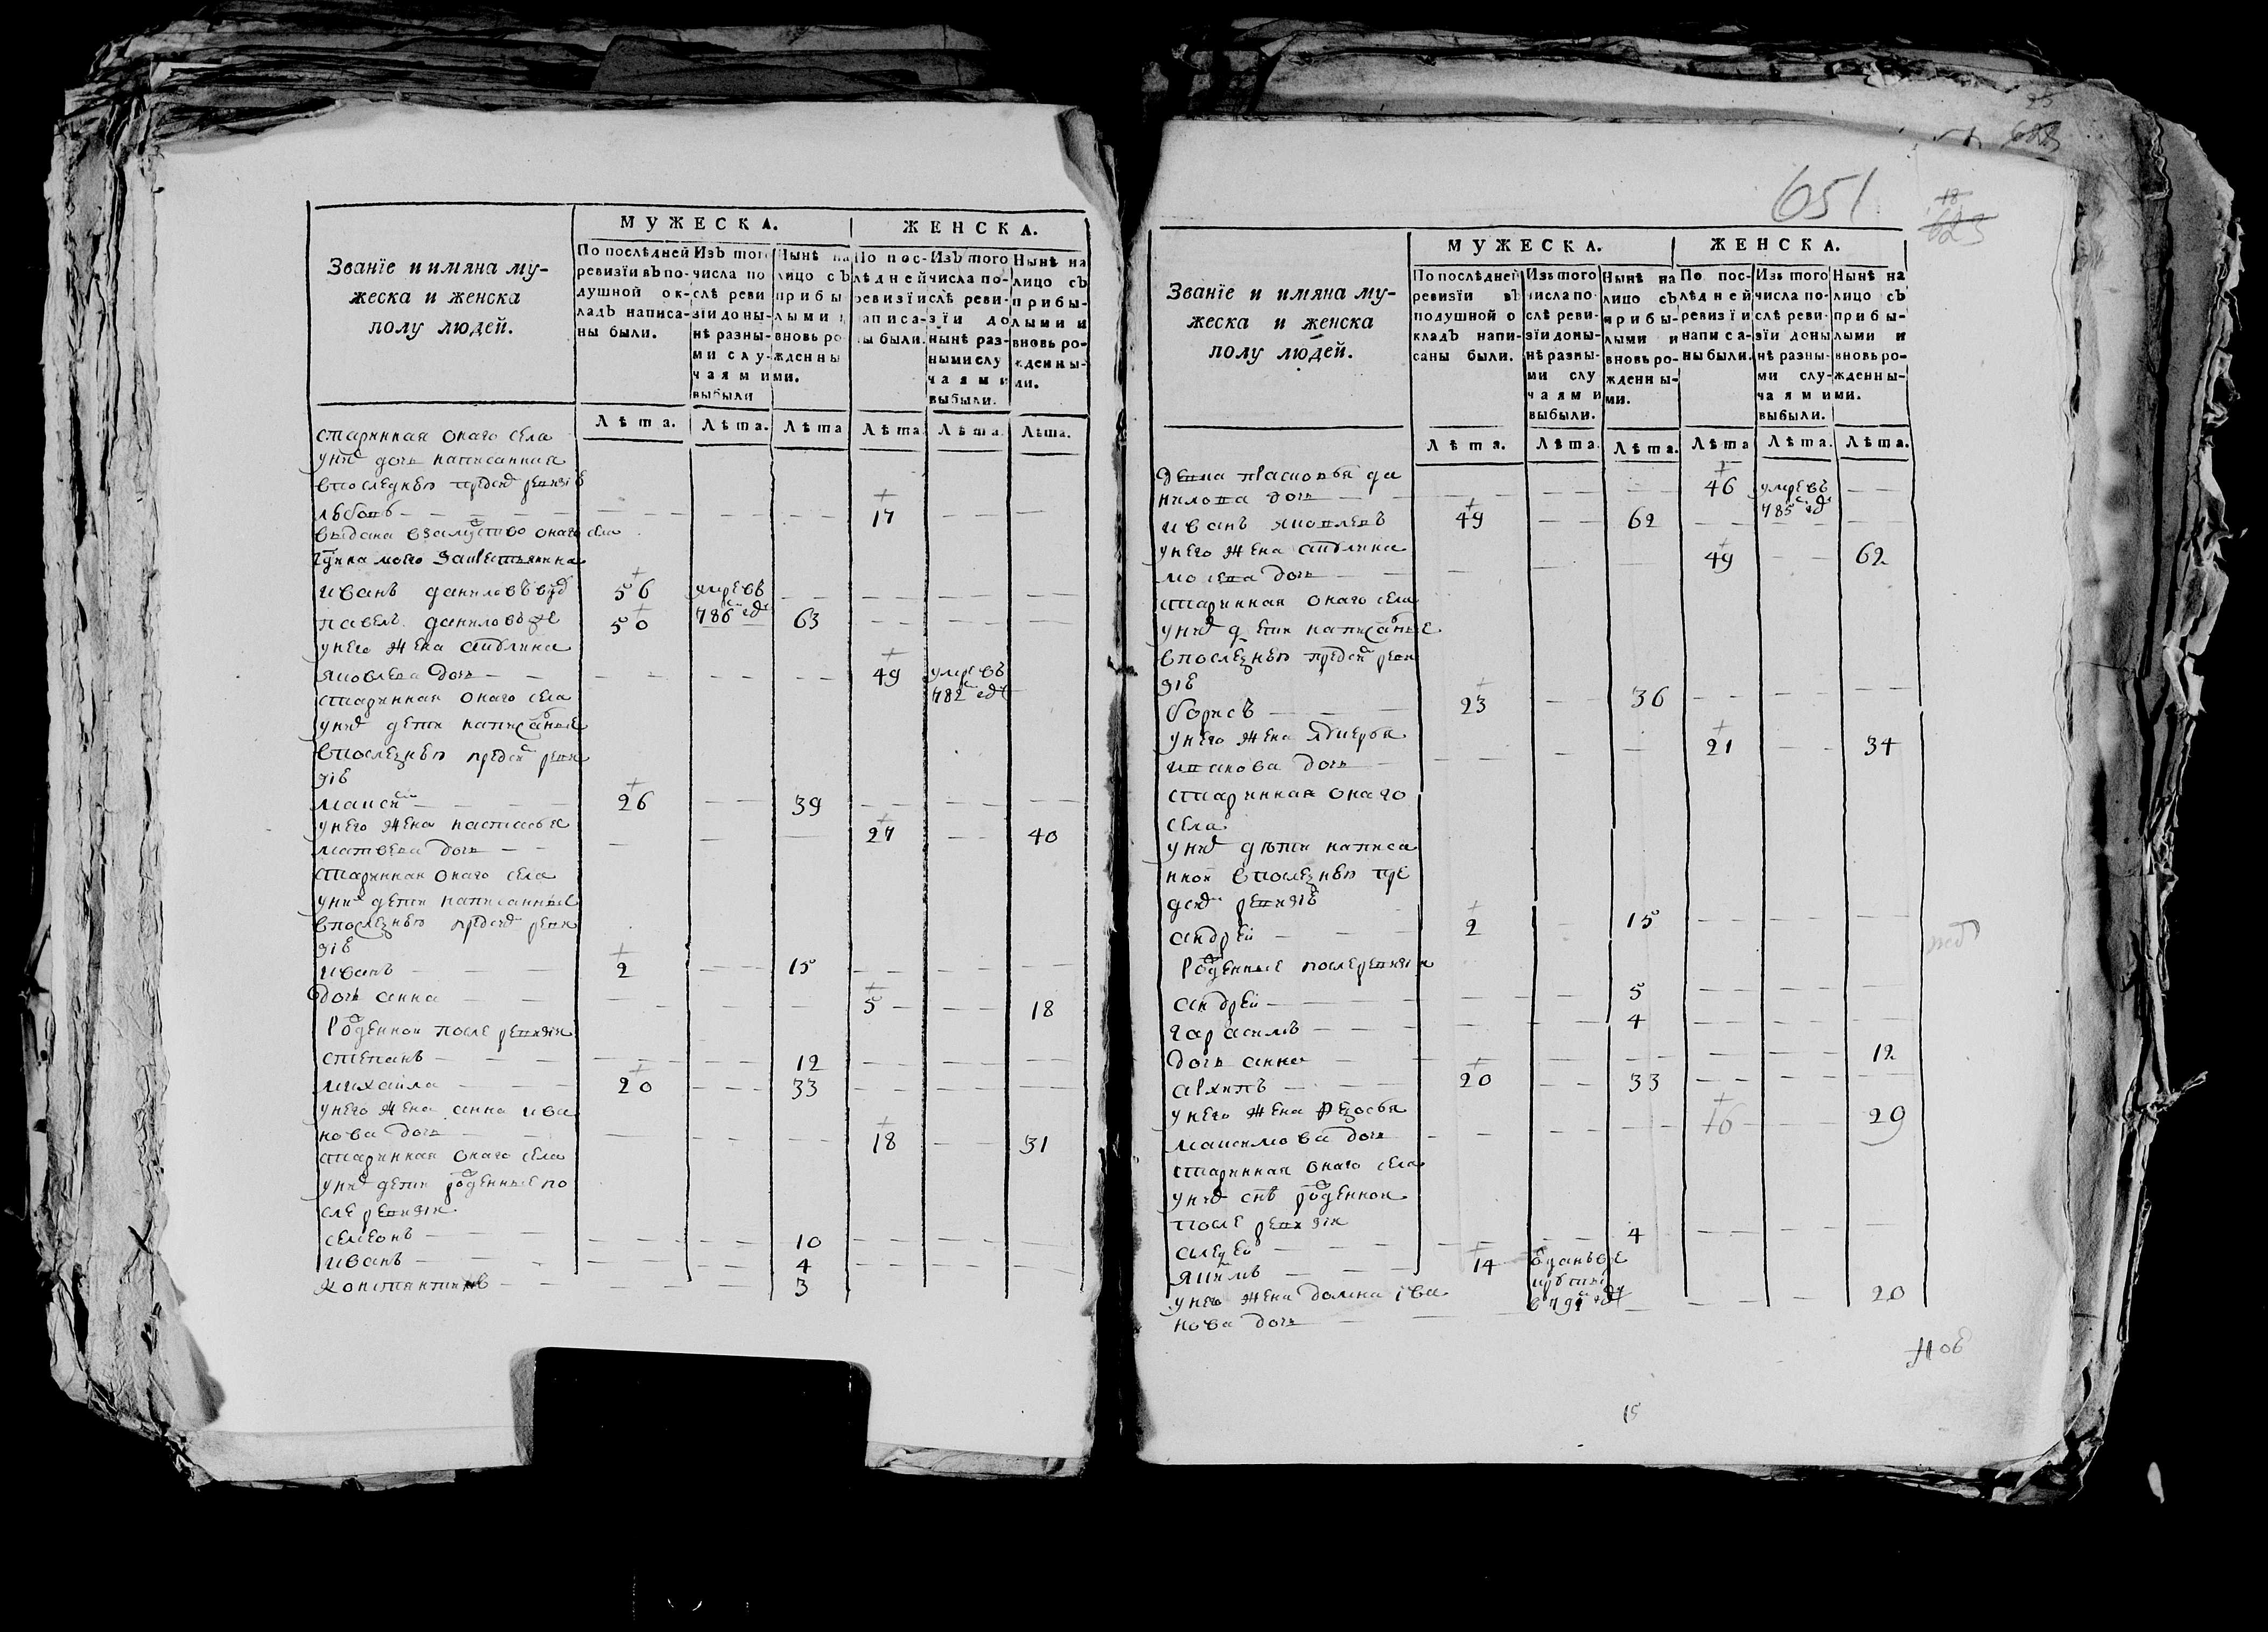 МУЖЕСКА.
ЖЕНСКА.
Званїе и имяна му-
жеска и женска
полу людей.
По послѣдней
ревизїи въ по-
душной ок-
ладъ написа-
ны были.
Изъ того
числа по
слѣ реви
зїи доны-
нѣ разны-
ми слу-
чаями
выбыли
Нынѣ на
лицо съ
прибы
лыми и
вновь ро
жденны
ми.
По пос-
лѣдней
ревизїи
написа-
ны были.
Изъ того
числа по-
слѣ реви-
зїи до
нынѣ раз-
ными слу
чаями
выбыли.
Нынѣ на
лицо съ
прибы-
лыми и
вновь ро-
жденны-
ми.
Лѣта. Лѣта. Лѣта Лѣта. Лѣта. Лѣта.
старинная онаго села
у нихъ дочь написанная
в последней пред сей ревизiе
любовь 17
выдана в замуство онаго села
иванъ даниловъ вдъ 56 умре въ
786м годе
павелъ даниловъ 50 63
у него жена
яковлева дочь 49 умре въ
782м годе
старинная онаго села
у нихъ дети написаные
в последней пред сей реви
зiе
максимъ 26 39
у него жена настасья
матвева дочь 27 40
старинная онаго села
у нихъ дети написанные
в последней пред сей реви
зiе
иванъ 2 15
дочь анна 5 18
рожденной после ревизiи
степанъ 12
михайла 20 33
у него жена анна ива
нова дочь 18 31
старинная онаго села
у нихъ дети рожденные по
сле ревизiи
семенъ 10
иванъ 4
константинъ 3
651
18
623
МУЖЕСКА.
ЖЕНСКА.
Званїе и имяна му-
жеска и женска
полу людей.
По послѣдней
ревизїи въ
подушной о
кладъ напи-
саны были.
Изъ того
числа по
слѣ реви-
зїи доны-
нѣ разны-
ми слу
чаями
выбыли.
Нынѣ на
лицо съ
прибы-
лыми и
вновь ро-
жденны-
ми.
По пос-
лѣдней
ревизїи
написа-
ны были.
Изъ того
числа по-
слѣ реви-
зїи доны
нѣ разны-
ми слу-
чаями
выбыли.
Нынѣ на
лицо съ
прибы-
лыми и
вновь ро-
жденны-
ми.
Лѣта. Лѣта. Лѣта. Лѣта Лѣта. Лѣта.
жена прасковья да
нилова дочь 46 умре въ
785м годе
иванъ яковлевъ 49 62
у него жена
дочь 49 62
старинная онаго села
у нихъ дети написаные
в последней пред сей реви
зiе
борисъ 23 36
у него жена
иванова дочь 21 34
старинная онаго
села
у нихъ дѣти написа
нной в последней пре
д сей ревизiе
андрей 2 15
рожденные после ревизiи
андрей 5
гарасимъ 4
дочь анна 12
архипъ 20 33
у него жена федосья
максимова дочь 16 29
старинная онаго села
у нихъ снъ рожденной
после ревизiи
4
якимъ 14 отданъ в ре
круты
в 791м годе
у него жена домна iва
нова дочь 20
15